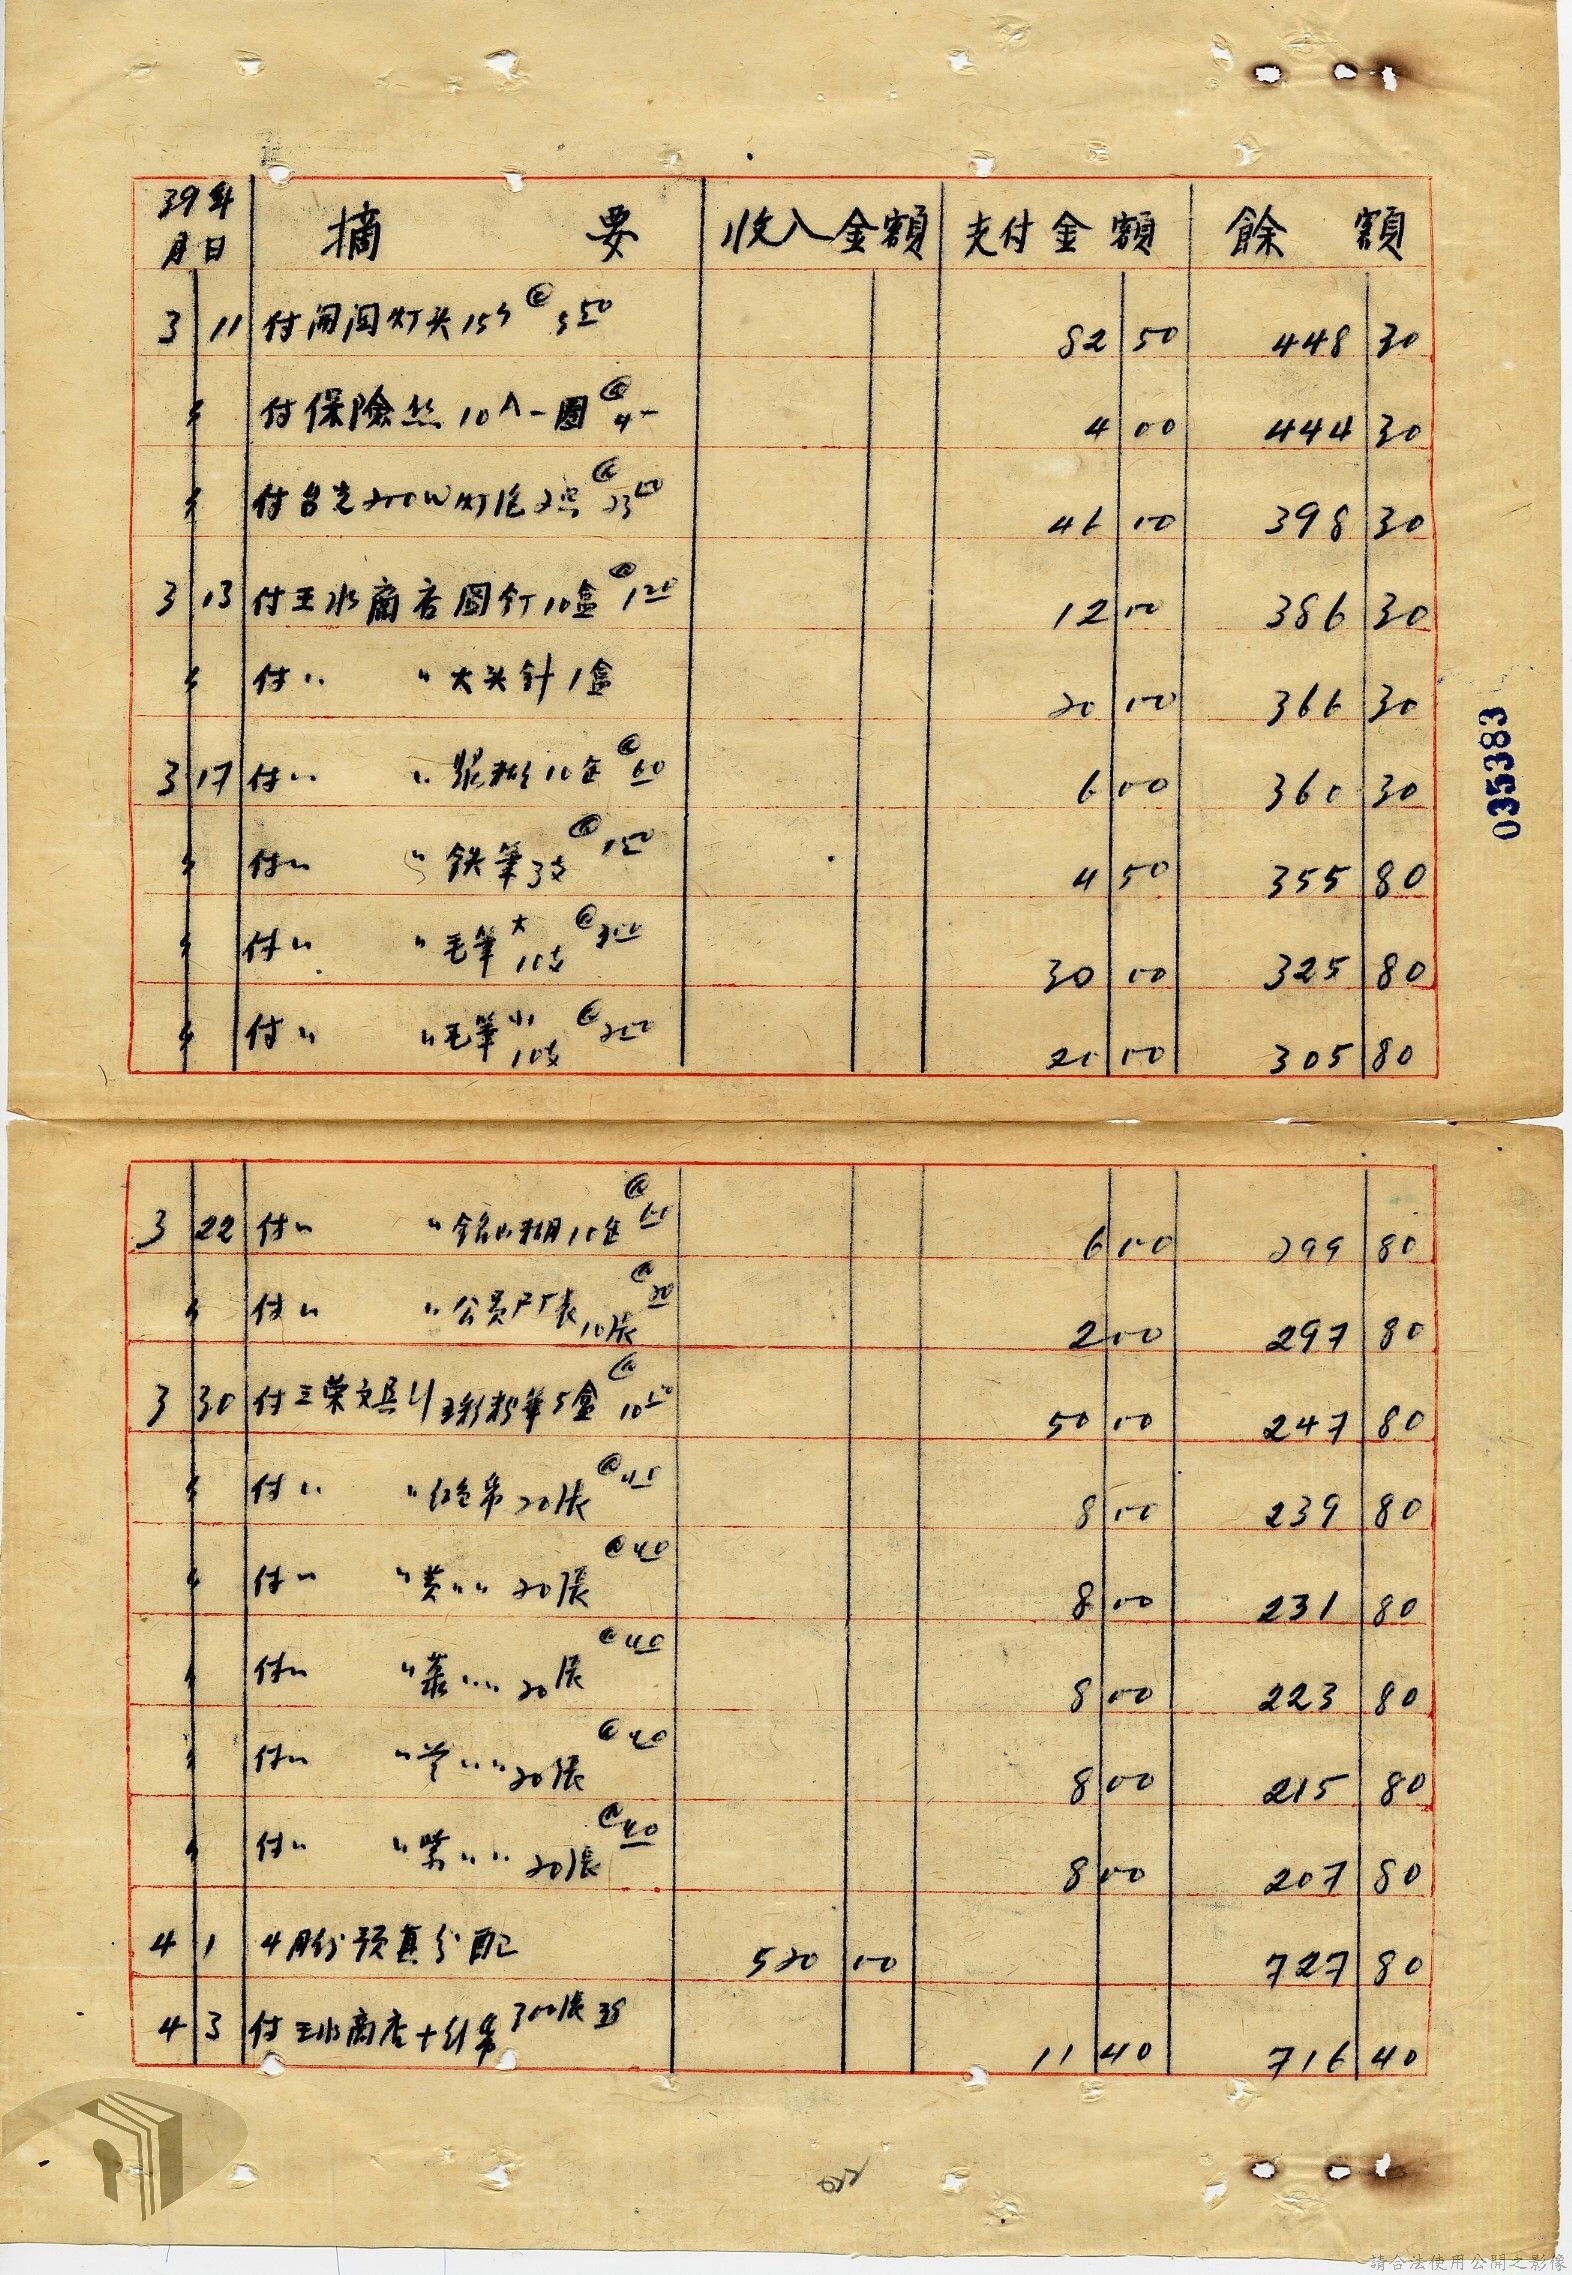 39年
月日 摘 要 收入金額 支付金額 餘 額
3 11 付開関灯头15个 @ 5.50 82 50 448 30
〃 付保險丝10A一圈 @ 4- 4 00 444 30
〃 付台光200W灯泡2只 @ 23.00 46 00 398 30
3 13 付玉水商店圖钉10盒 @ 1.20 12 00 386 30
〃 付〃 〃大头針1盒 20 00 366 30
3 17 付〃 〃 糊10 @ 60 6 00 360 30
〃 付〃 〃鉄筆3支 @ 1.50 4 50 355 80
〃 付〃 〃毛筆大10支 @ 3.00 30 00 325 80
〃 付〃 〃毛筆小10支 @ 2.00 20 00 305 80
3 22 付〃 〃 糊10 @ 60 6 00 299 80
〃 付〃 〃公 表10張 @ 20 2 00 297 80
3 30 付三荣文具 五彩粉筆5盒 @ 10.00 50 00 247 80
〃 付〃 〃红色帋20張 @ 40 8 00 239 80
〃 付〃 〃黄〃〃20張 @ 40 8 00 231 80
〃 付〃 〃 〃〃20張 @ 40 8 00 223 80
〃 付〃 〃 〃〃20張 @ 40 8 00 215 80
〃 付〃 〃紫〃〃20張 @ 40 8 00 207 80
4 1 4月份预算分配 520 00 727 80
4 3 付玉水商店十行帋300張 11 40 716 40
035383
請合法使用公開之影像